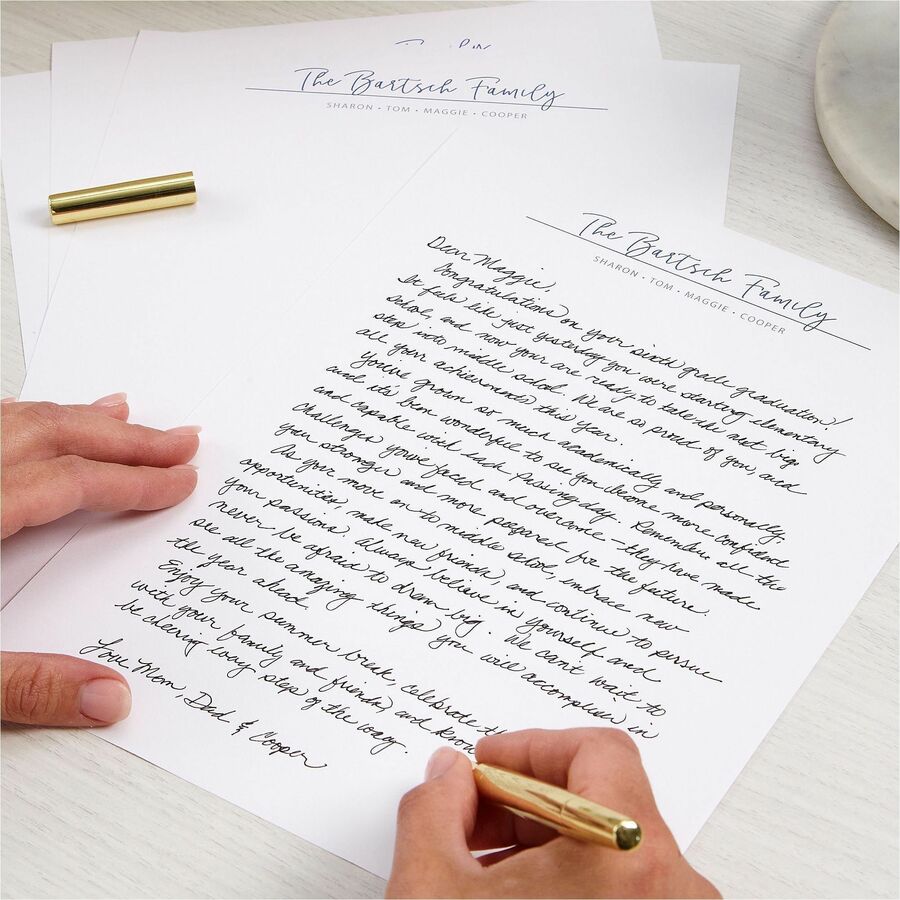 The Bartsch Family
SHARON • TOM • MAGGIE • COOPER
The Bartsch Family
SHARON • TOM • MAGGIE • COOPER
Dear Maggie,
Congratulations on your sixth grade graduation!
It feels like just yesterday you were starting elementary
school, and now your are ready to take the next big
step into middle school. We are so proud of you, and
all your achievements this year.
You've grown so much academically and personally,
and it's been wonderful to see you become more confident
and capable with each passing day. Remember all the
challenges you've faced and overcome - they have made
your stronger and more prepared for the future.
As your move on to middle school, embrace new
opportunities, make new friends, and continue to pursue
your passions. Always believe in yourself and
never be afraid to dream big. We can't wait to
see all the amazing things you will accomplish in
the year ahead.
Enjoy your summer break, celebrate
with your family and friends, and know
be cheering every step of the way.
Love Mom, Dad & Cooper